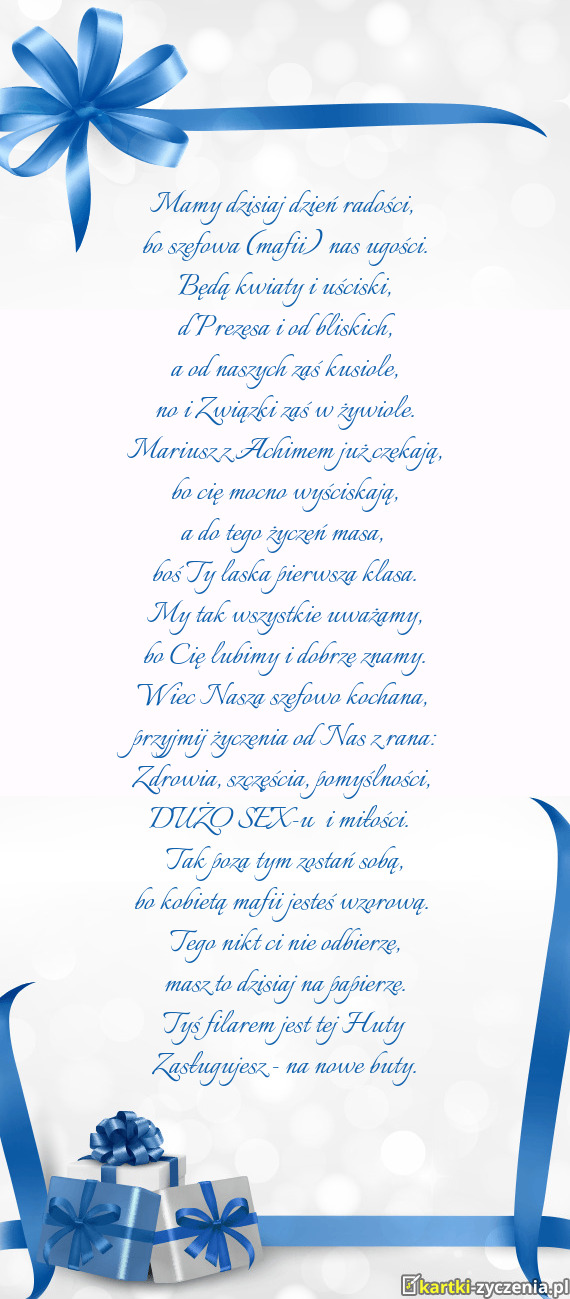 Mamy dzisiaj dzień radości,
bo szefowa (mafii) nas ugości.
Będą kwiaty i uściski,
d Prezesa i od bliskich,
a od naszych zaś kusiole,
no i Związki zaś w żywiole.
Mariusz z Achimem już czekają,
bo cię mocno wyściskają,
a do tego życzeń masa,
boś Ty laska pierwsza klasa.
My tak wszystkie uważamy,
bo Cię lubimy i dobrze znamy.
Wiec Nasza szefowo kochana,
przyjmij życzenia od Nas z rana:
Zdrowia, szczęścia, pomyślności,
DUŻO SEX-u i miłości.
Tak poza tym zostań sobą,
bo kobietą mafii jesteś wzorową.
Tego nikt ci nie odbierze,
masz to dzisiaj na papierze.
Tyś filarem jest tej Huty
Zasługujesz - na nowe buty.
kartki-zyczenia.pl